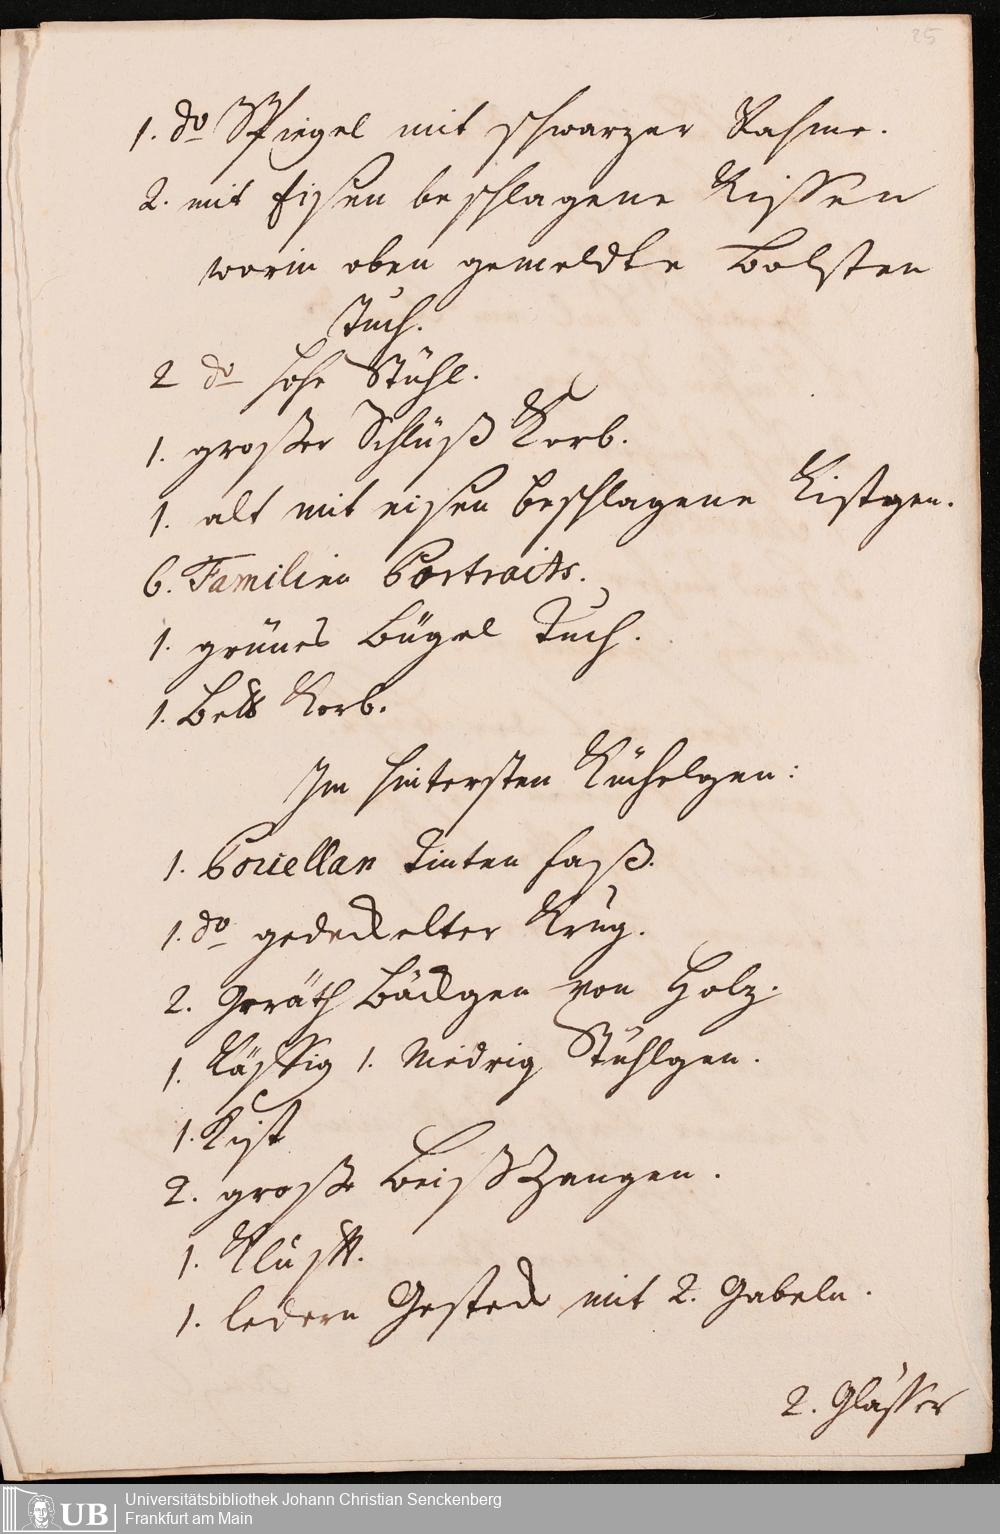 25
1. do Spiegel mit schwarzer Rahme.
2. mit Eisen beschlagene Kisten
worin oben gemeldte
Tuch.
2 do hohe Stühl.
1. großer Schlüß Korb.
1. alt mit eisen beschlagene Kistgen.
6. Familien Portraits.
1. grünes Bügel Tuch.
1. Bett Korb.
Im hintersten Küchelgen:
1. Porcellan Tinten faß.
1. do gedeckelter Krug.
2. Geräth Böckgen von Holz.
1. Käffig 1. Niedrig Stühlgen.
1. Kist
2. große Beiß Zangen.
1. Klufft.
1. ledern Gesteck mit 2. Gabeln.
2. Glässer
UB
Universitätsbibliothek Johann Christian Senckenberg
Frankfurt am Main